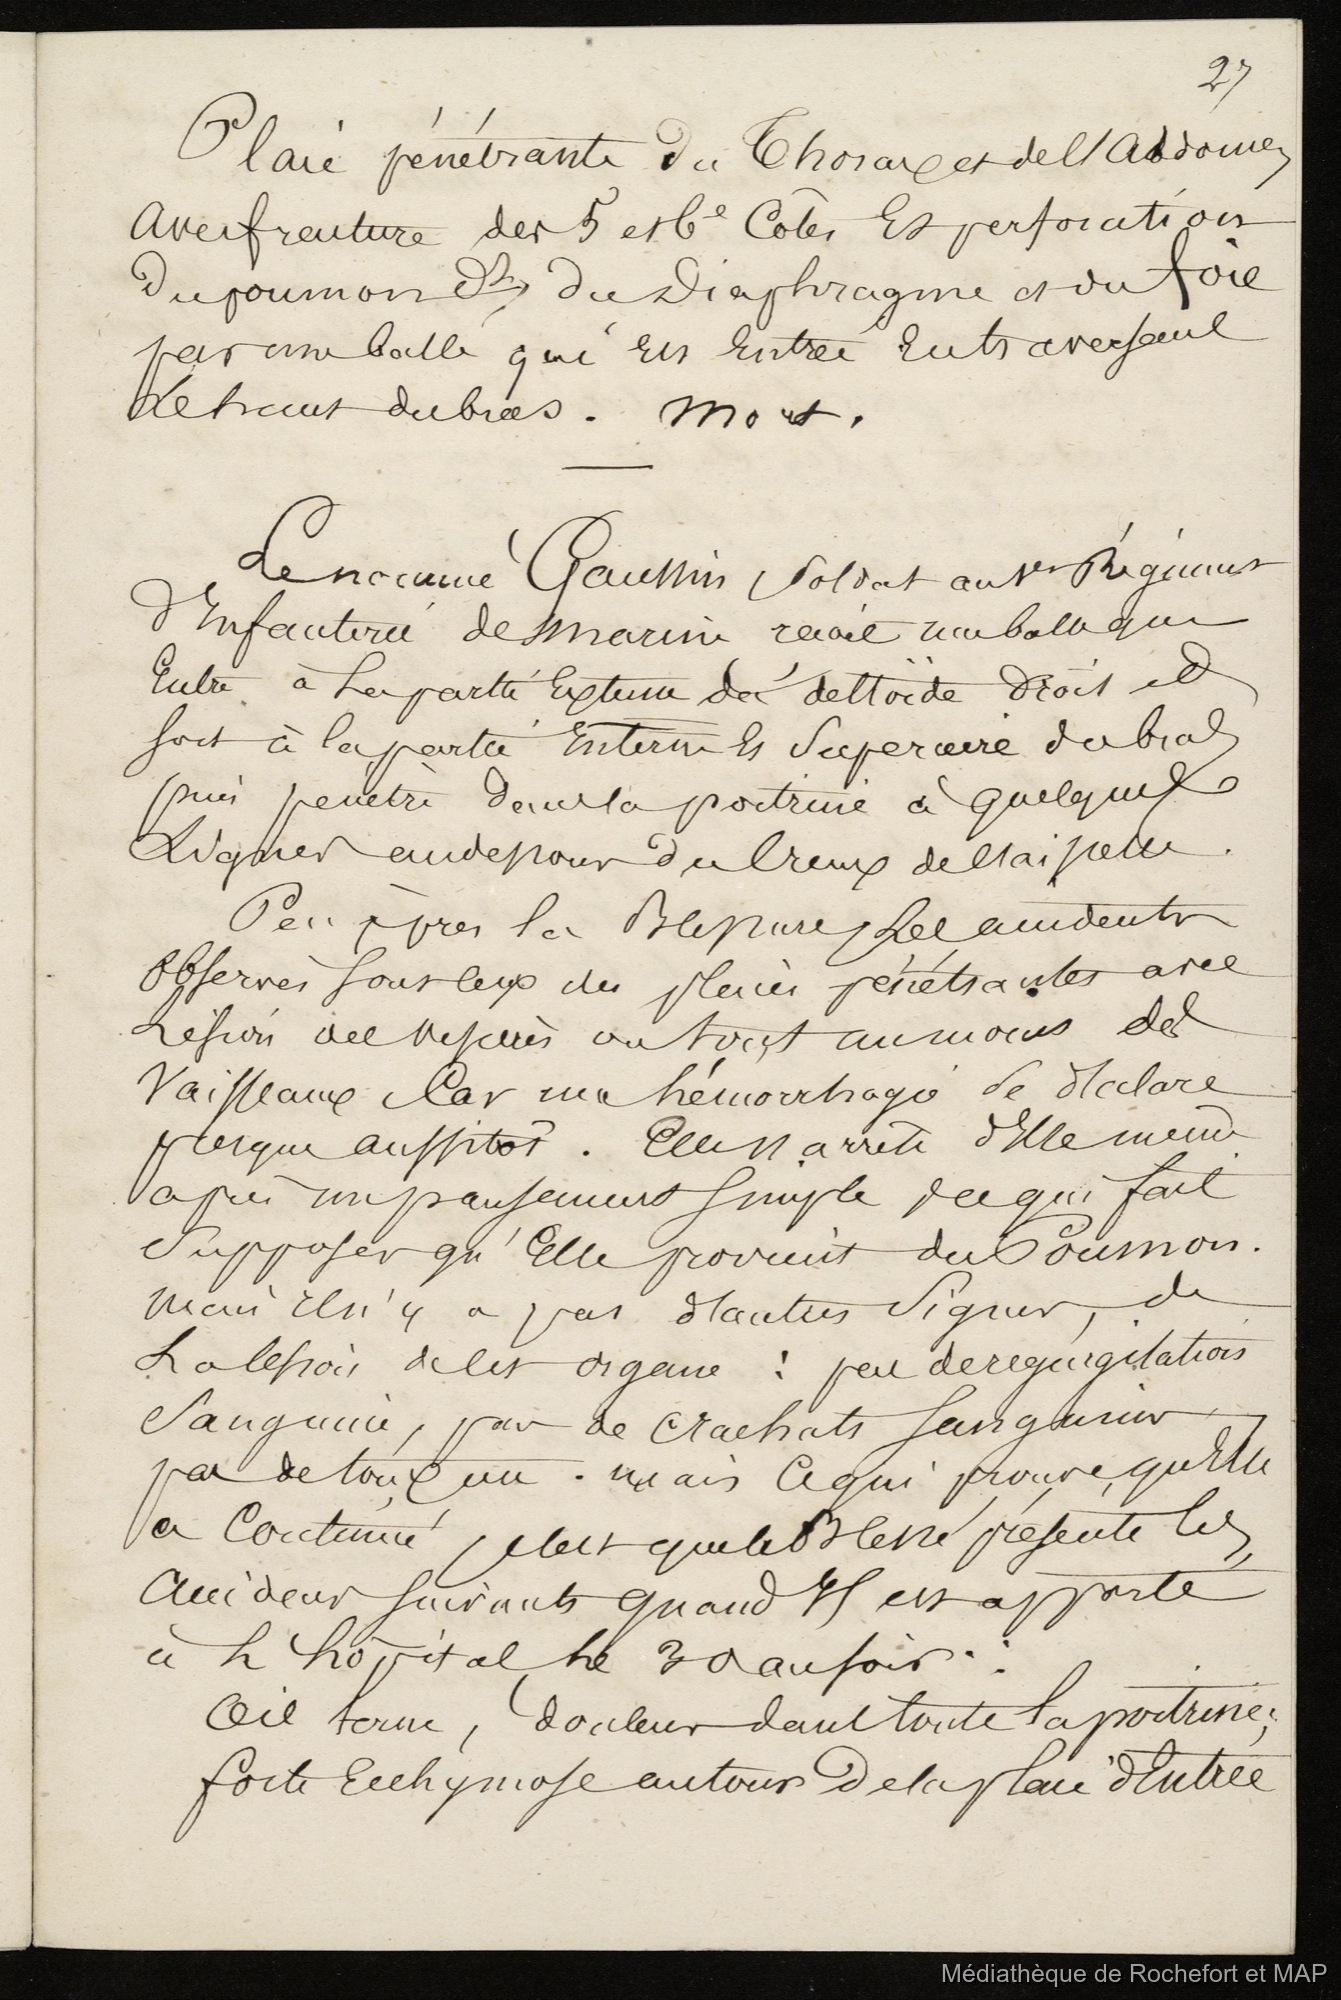 27
Plaie pénétrante du Thorax et de l'Abdomen
avec fracture des 5 et 6e Côtes Et perforation
du poumon Dt, du Diaphragme et du foie
par une balle qui Est Entrée En traversant
Le haut du bras. Mort.
Le nommé Gaussin soldat au 1er Régiment
d'Infanterie de Marine reçoit une balle qui
Entre à La partie Externe du deltoïde droit et
sort à la partie Interne Et Supérieure du bras
puis pénètre dans la poitrine à quelques
Lignes au dessous du Creux de l'aisselle.
Peu après la Blessure, Les accidents
Observés sont ceux des plaies pénétrantes avec
Lésion des viscères ou tout au moins des
Vaisseaux Car une hémorrhagie se déclare
presque aussitôt. Elle s'arrête d'Elle même
après un pansement simple ce qui fait
Supposer qu'Elle provient du Poumon.
Mais Il n'y a pas d'autres Signes, de
La lésion de cet organe : pas de regurgitations
Sanguine, pas de crachats sanguins
pas de toux . mais Ce qui prouve qu'Elle
a Continué, c'est que le Blessé présente les
accidens suivants quand Il est apporté
à L'hôpital, le 30 au soir :
Œil terne, douleur dans toute la poitrine,
forte Ecchymose autour De la plaie d'Entrée
Médiathèque de Rochefort et MAP